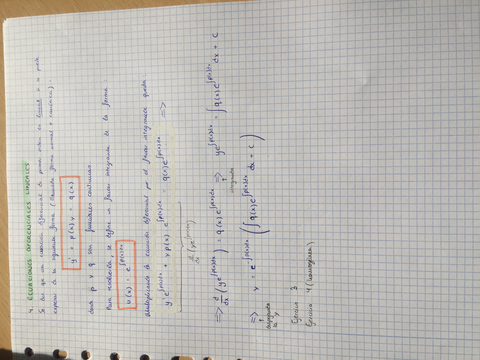 4. ECUACIONES DIFERENCIALES LINEALES
Se dice que una ecuación diferencial de primer orden es lineal si se puede
expresar de la siguiente forma (llamada forma normal o canónica):
y' + p(x)y = q(x)
donde p y q son funciones continuas
Para resolverla, se define un factor integrante de la forma
u(x) = e^∫p(x)dx
Multiplicando la ecuación diferencial por el factor integrante queda
y'e^∫p(x)dx + y p(x) e^∫p(x)dx = q(x)e^∫p(x)dx =>
=> d/dx (y e^∫p(x)dx) = q(x)e^∫p(x)dx => y e^∫p(x)dx = ∫q(x)e^∫p(x)dx dx + C
integrando
=> y = e^∫p(x)dx (∫q(x)e^∫p(x)dx dx + C)
despejando
y
Ejercicio 3
Ejercicio 4 (homogénea)